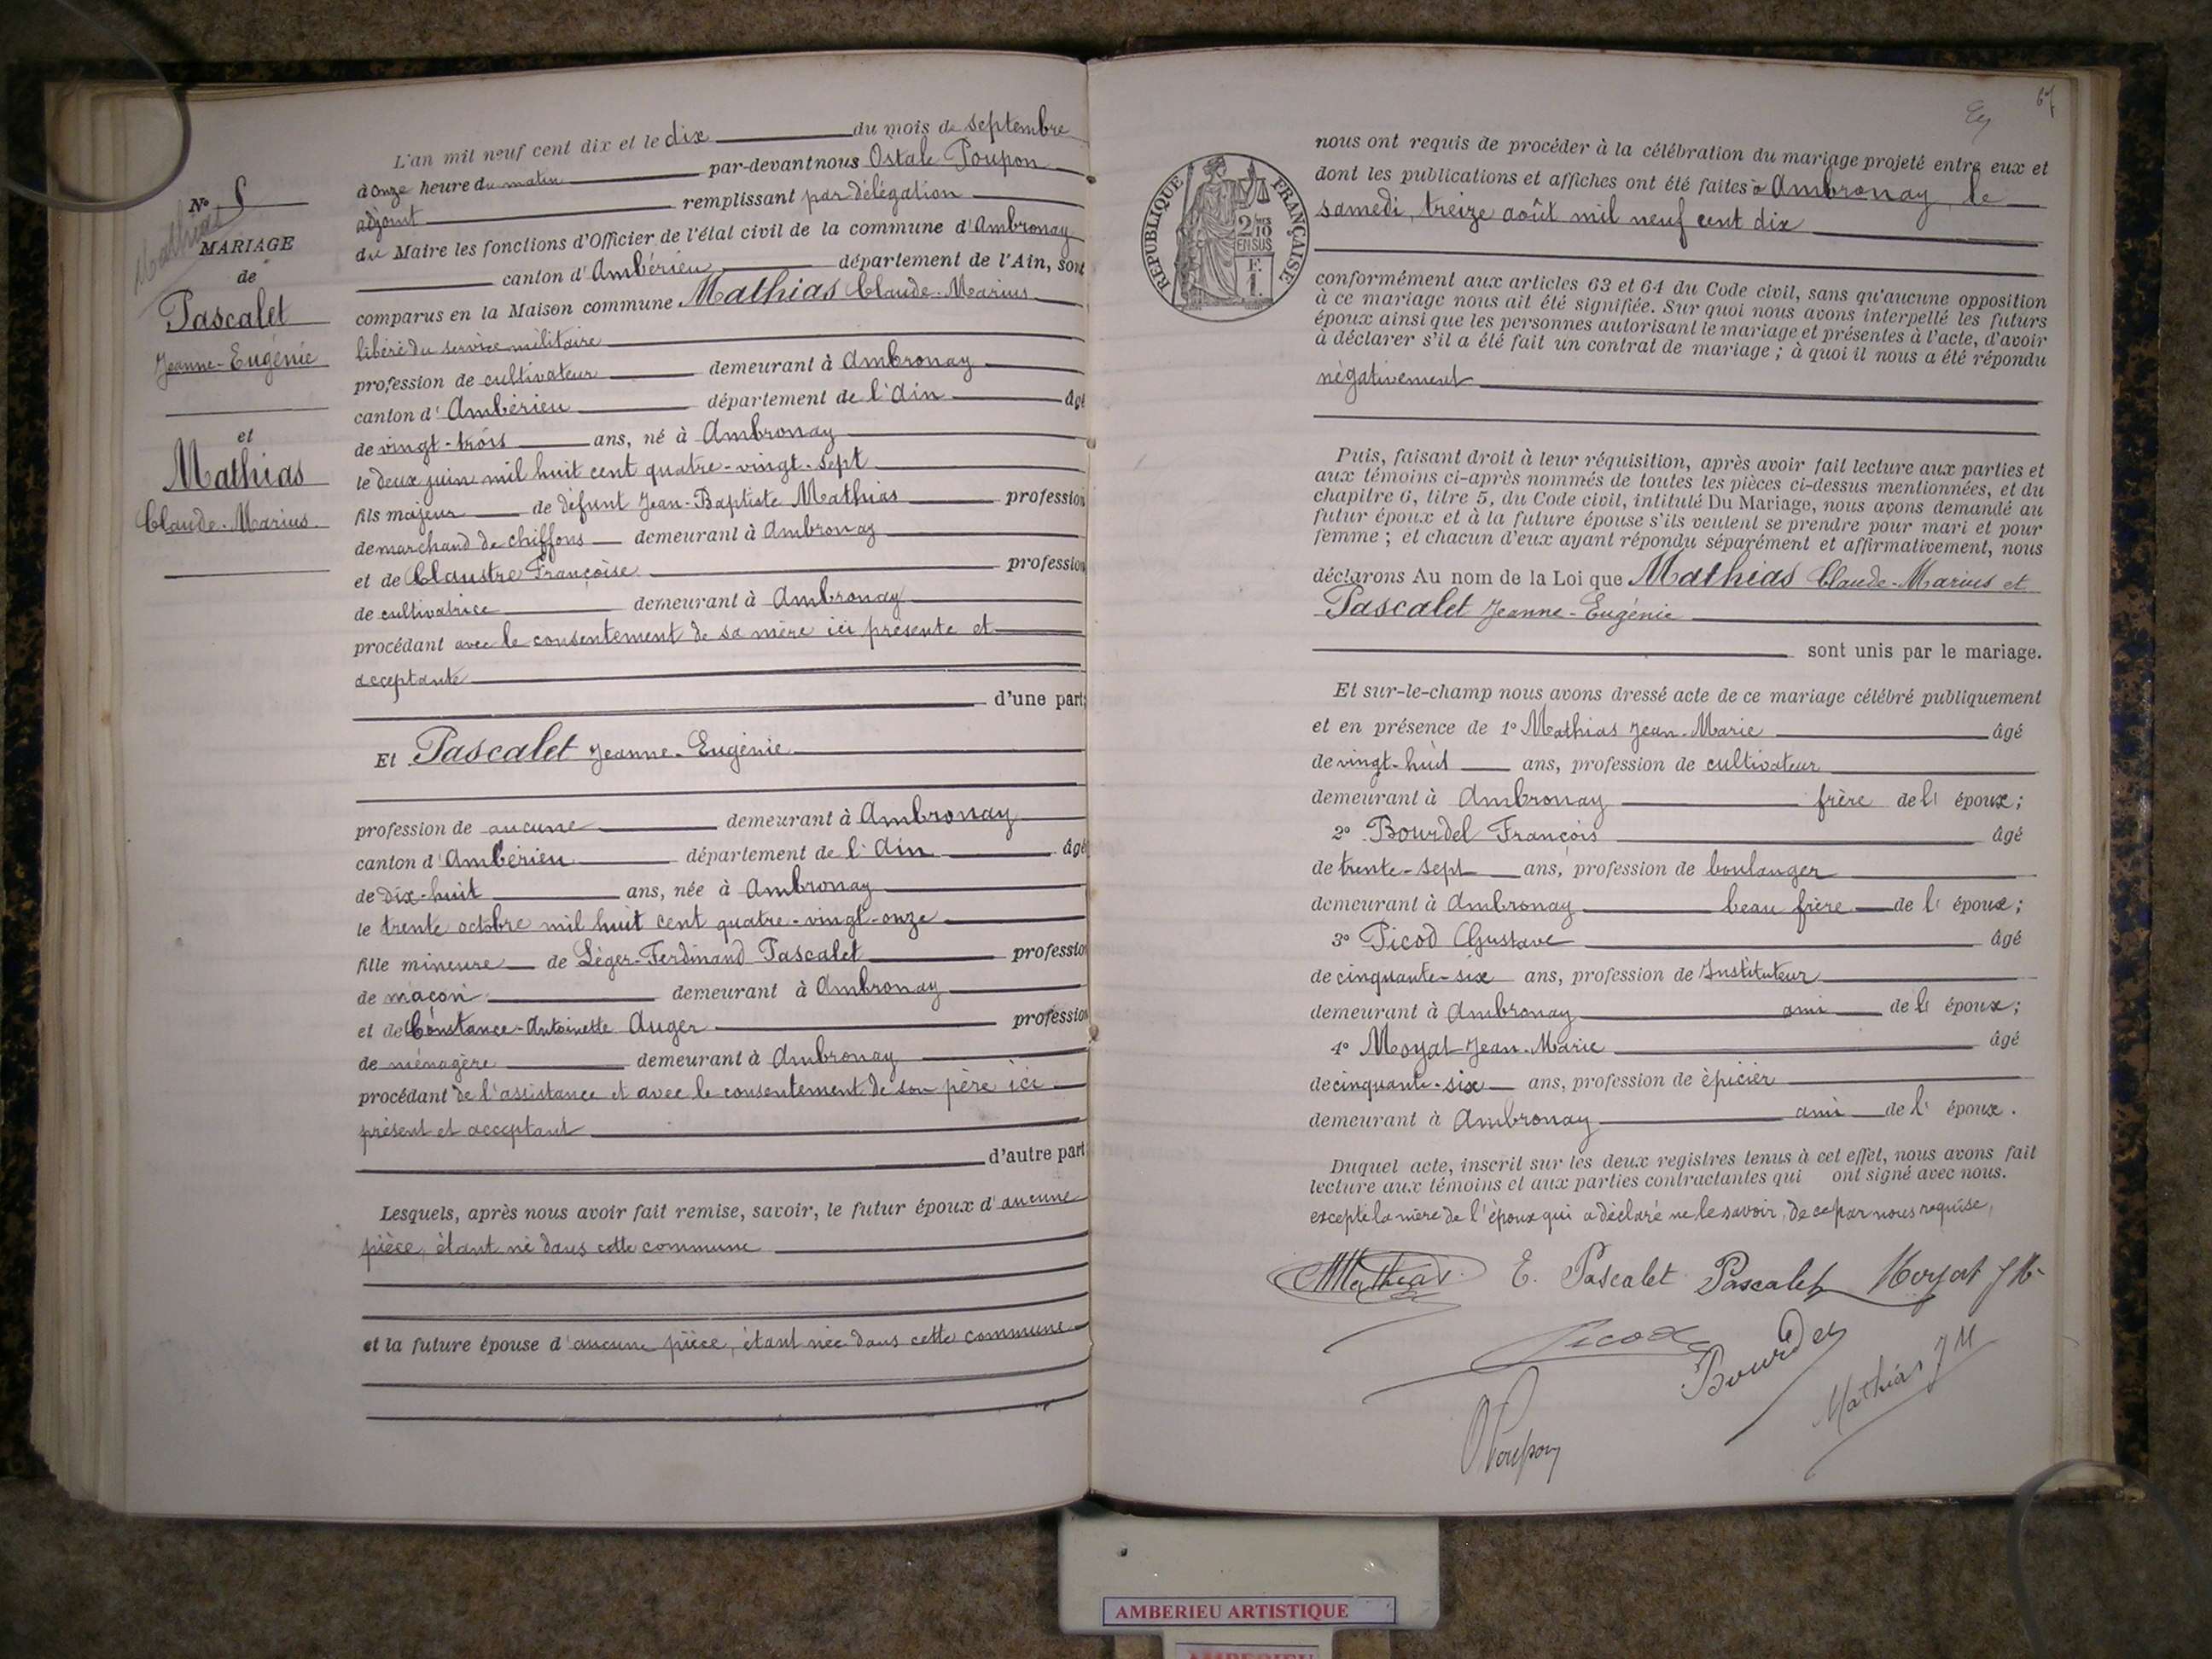 L'an mil neuf cent dix et le dix du mois de septembre
à onze heure du matin par-devant nous Ostale Poupon
adjoint remplissant par délégation
du Maire les fonctions d'Officier de l'état civil de la commune d'Ambronay
canton d'Ambérieu département de l'Ain, sont
comparus en la Maison commune Mathias Claude-Marius
libéré du service militaire
profession de cultivateur demeurant à Ambronay
canton d'Ambérieu département de l'Ain âgé
de vingt-trois ans, né à Ambronay
le deux juin mil huit cent quatre-vingt-sept
fils majeur de défunt Jean-Baptiste Mathias profession
de marchand de chiffons demeurant à Ambronay
et de Claustre Françoise profession
de cultivatrice demeurant à Ambronay
procédant avec le consentement de sa mère ici présente et
acceptante
d'une part;
Et Pascalet Jeanne-Eugénie
profession de aucune demeurant à Ambronay
canton d'Ambérieu département de l'Ain âgé
de dix-huit ans, née à Ambronay
le trente octobre mil huit cent quatre-vingt-onze
fille mineure de Léger-Ferdinand Pascalet profession
de maçon demeurant à Ambronay
et de Constance-Antoinette Auger profession
de ménagère demeurant à Ambronay
procédant de l'assistance et avec le consentement de son père ici
présent et acceptant
d'autre part
Lesquels, après nous avoir fait remise, savoir, le futur époux d'aucune
pièce, étant né dans cette commune
et la future épouse d'aucune pièce, étant née dans cette commune
No
Mathias
MARIAGE
de
Pascalet
Jeanne-Eugénie
et
Mathias
Claude-Marius
67
RÉPUBLIQUE FRANÇAISE
2/10
EN SUS
F.
1.
nous ont requis de procéder à la célébration du mariage projeté entre eux et
dont les publications et affiches ont été faites à Ambronay, le
samedi, treize août mil neuf cent dix
conformément aux articles 63 et 64 du Code civil, sans qu'aucune opposition
à ce mariage nous ait été signifiée. Sur quoi nous avons interpellé les futurs
époux ainsi que les personnes autorisant le mariage et présentes à l'acte, d'avoir
à déclarer s'il a été fait un contrat de mariage ; à quoi il nous a été répondu
négativement
Puis, faisant droit à leur réquisition, après avoir fait lecture aux parties et
aux témoins ci-après nommés de toutes les pièces ci-dessus mentionnées, et du
chapitre 6, titre 5, du Code civil, intitulé Du Mariage, nous avons demandé au
futur époux et à la future épouse s'ils veulent se prendre pour mari et pour
femme ; et chacun d'eux ayant répondu séparément et affirmativement, nous
déclarons Au nom de la Loi que Mathias Claude-Marius et
Pascalet Jeanne-Eugénie
sont unis par le mariage.
Et sur-le-champ nous avons dressé acte de ce mariage célébré publiquement
et en présence de 1° Mathias Jean-Marie âgé
de vingt-huit ans, profession de cultivateur
demeurant à Ambronay frère de l' époux;
2° Bourdel François âgé
de trente-sept ans, profession de boulanger
demeurant à Ambronay beau frère de l' époux;
3° Picod Gustave âgé
de cinquante-six ans, profession de Instituteur
demeurant à Ambronay ami de l' époux;
4° Moyat Jean-Marie âgé
de cinquante-six ans, profession de épicier
demeurant à Ambronay ami de l' époux.
Duquel acte, inscrit sur les deux registres tenus à cet effet, nous avons fait
lecture aux témoins et aux parties contractantes qui ont signé avec nous.
excepté la mère de l'époux qui a déclaré ne le savoir, de ce par nous requise,
Mathias E. Pascalet Pascalet Moyat J M
Picod Bourdel Mathias J M
O Poupon
AMBERIEU ARTISTIQUE
AMBERIEU